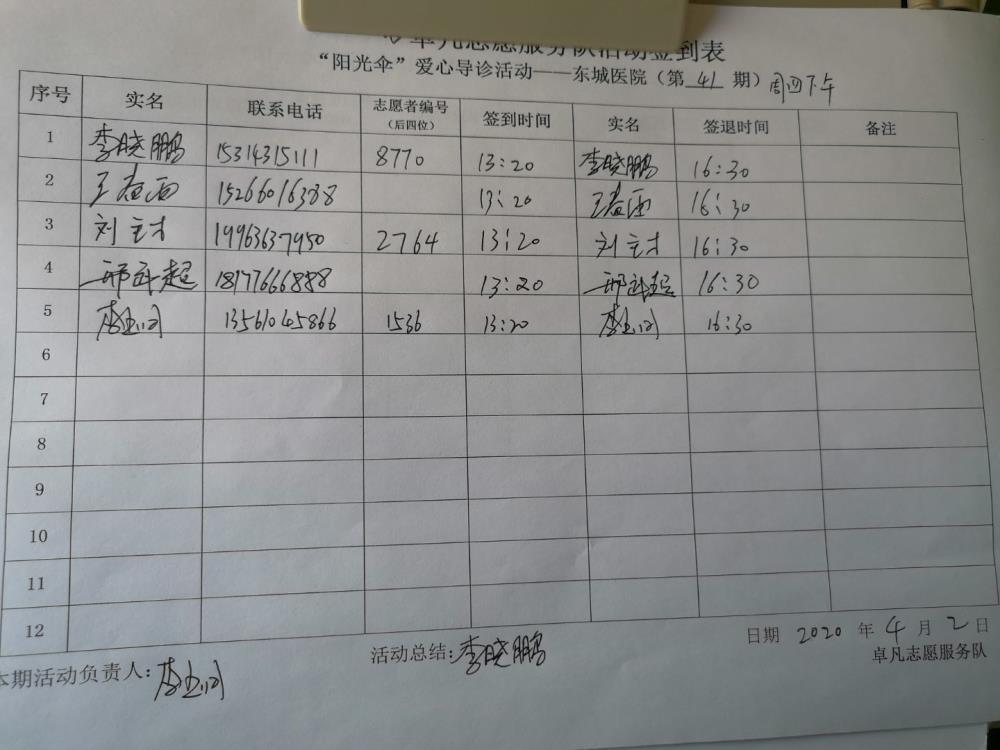 卓凡志愿服务队活动签到表
“阳光伞”爱心导诊活动——东城医院（第 41 期）周四下午
序号 实名 联系电话 志愿者编号（后四位） 签到时间 实名 签退时间 备注
1 李晓鹏 15314315111 8770 13:20 李晓鹏 16:30
2 王春西 15266016388 13:20 王春西 16:30
3 刘主才 19963637950 2764 13:20 刘主才 16:30
4 18177666888 13:20 16:30
5 13561045866 1536 13:20 16:30
6
7
8
9
10
11
12
日期 2020 年 4 月 2 日
活动总结:李晓鹏
卓凡志愿服务队
本期活动负责人: